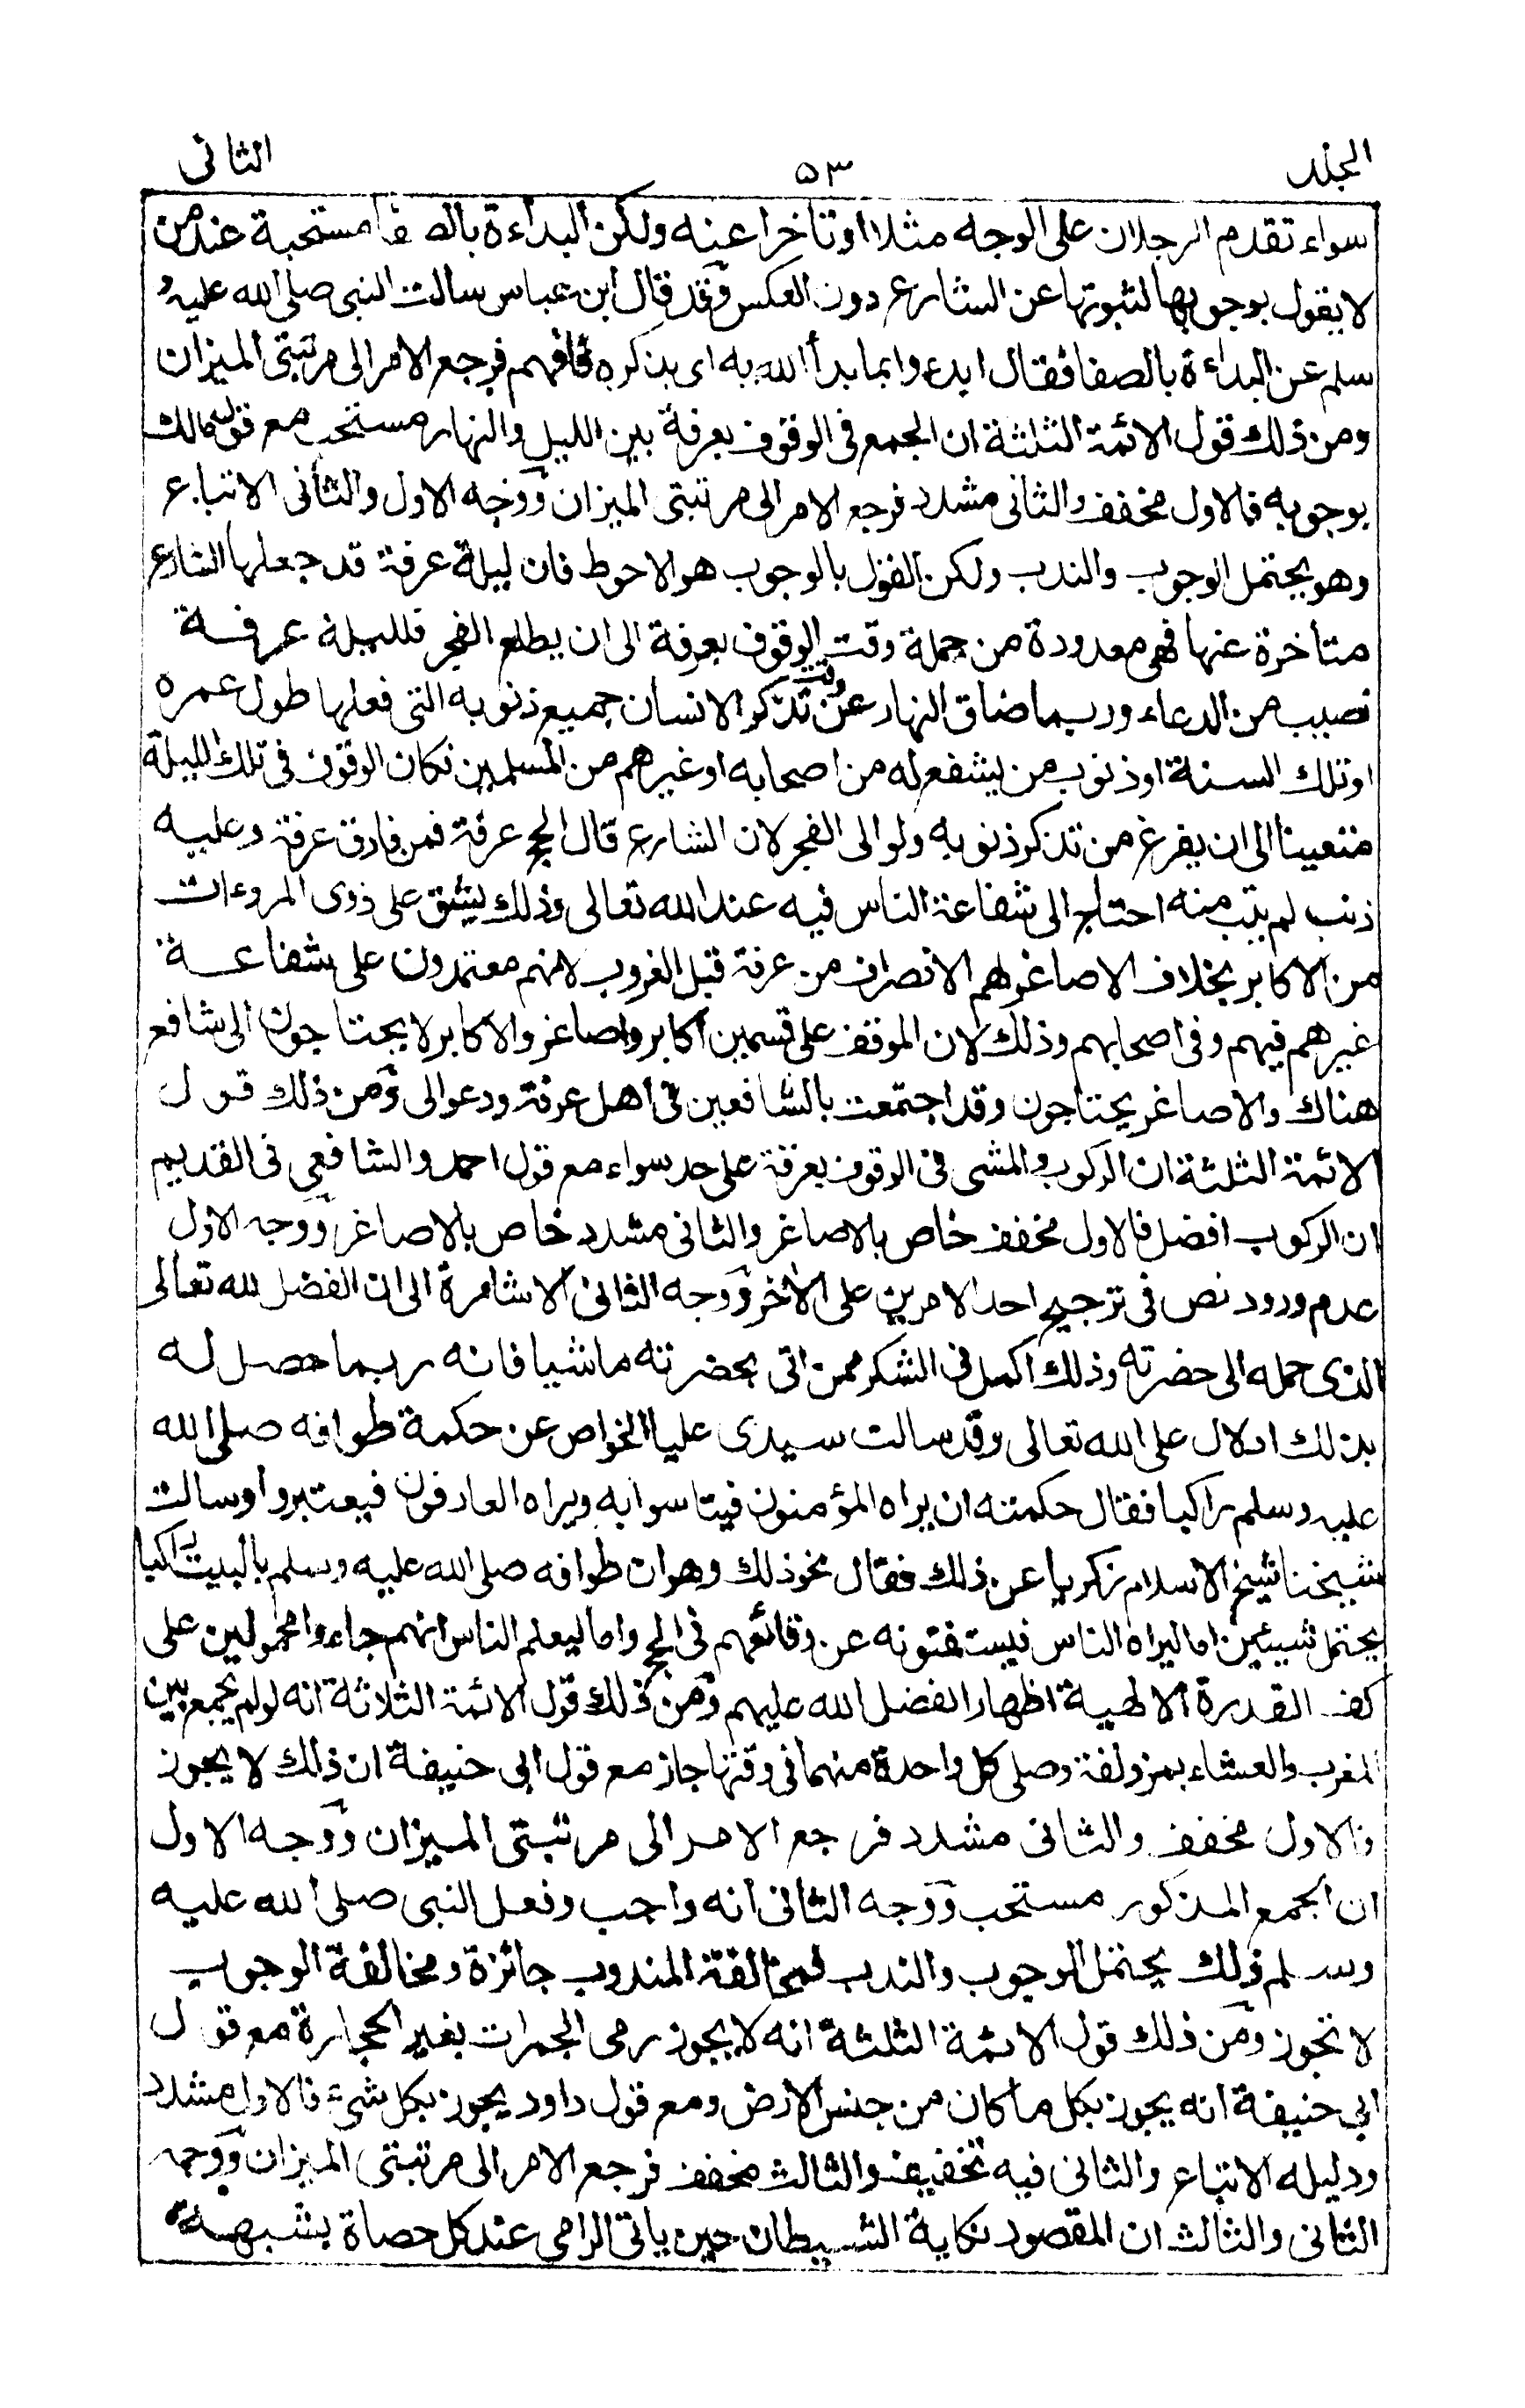 المجلد ٥٣ الثانى
سواء تقدم الرجلان على الوجه مثلا او تاخرا عنه ولكن البداءة بالصفا مستحبة عند من
لا يقول بوجوبها لثبوتها عن الشارع دون العكس وقد قال ابن عباس سالت النبى صلى الله عليه و
سلم عن البداءة بالصفا فقال ابدءوا بما بدأ الله به اى بذكره فافهم فرجع الامر الى مرتبتى الميزان
ومن ذلك قول الائمة الثلثة ان الجمع فى الوقوف بعرفة بين الليل والنهار مستحب مع قول مالك
بوجوبه فالاول مخفف والثانى مشدد فرجع الامر الى مرتبتى الميزان ووجه الاول والثانى الاتباع
وهو يحتمل الوجوب والندب ولكن القول بالوجوب هو الاحوط فان ليلة عرفة قد جعلها الشارع
متأخرة عنها فهى معدودة من جملة وقت الوقوف بعرفة الى ان يطلع الفجر فلليلة عرفة
نصيب من الدعاء وربما ضاق النهار عن وقت تذكر الانسان جميع ذنوبه التى فعلها طول عمره
او تلك السنة او ذنوب من يشفع له من اصحابه او غيرهم من المسلمين فكان الوقوف فى تلك الليلة
متعينا الى ان يفرغ من تذكر ذنوبه ولو الى الفجر لان الشارع قال الحج عرفة فمن فارق عرفة وعليه
ذنب لم يتب منه احتاج الى شفاعة الناس فيه عند الله تعالى وذلك يشق على ذوى المروءات
من الاكابر بخلاف الاصاغر لهم الانصراف من عرفة قبل الغروب لانهم معتمدون على شفاعة
غيرهم فيهم وفى اصحابهم وذلك لان الموقف على قسمين اكابر واصاغر والاكابر لا يحتاجون الى شافع
هناك والاصاغر يحتاجون وقد اجتمعت بالشافعين فى اهل عرفة ودعوا لى ومن ذلك قول
الائمة الثلثة ان الركوب والمشى فى الوقوف بعرفة على حد سواء مع قول احمد والشافعى فى القديم
ان الركوب افضل فالاول مخفف خاص بالاصاغر والثانى مشدد خاص بالاصاغر ووجه الاول
عدم ورود نص فى ترجيح احد الامرين على الآخر ووجه الثانى الاشارة الى ان الفضل لله تعالى
الذى حمله الى حضرته وذلك اكمل فى الشكر ممن اتى بحضرته ماشيا فانه ربما حصل له
بذلك ادلال على الله تعالى وقد سالت سيدى عليا الخواص عن حكمة طوافه صلى الله
عليه وسلم راكبا فقال حكمته ان يراه المؤمنون فيتاسوا به ويراه العارفون فيعتبروا وسالت
شيخنا شيخ الاسلام زكريا عن ذلك فقال نحو ذلك وهو ان طوافه صلى الله عليه وسلم بالبيت راكبا
يحتمل شيئين اما ليراه الناس فيستفتونه عن وقائعهم فى الحج واما ليعلم الناس انهم جاءوا محمولين على
كف القدرة الالهية اظهارا لفضل الله عليهم ومن ذلك قول الائمة الثلاثة انه لو لم يجمع بين
المغرب والعشاء بمزدلفة وصلى كل واحدة منهما فى وقتها جاز مع قول ابى حنيفة ان ذلك لا يجوز
فالاول مخفف والثانى مشدد فرجع الامر الى مرتبتى الميزان ووجه الاول
ان الجمع المذكور مستحب ووجه الثانى انه واجب وفعل النبى صلى الله عليه
وسلم ذلك يحتمل الوجوب والندب فمخالفة المندوب جائزة ومخالفة الوجوب
لا تجوز ومن ذلك قول الائمة الثلثة انه لا يجوز رمى الجمرات بغير الحجارة مع قول
ابى حنيفة انه يجوز بكل ما كان من جنس الارض ومع قول داود يجوز بكل شىء فالاول مشدد
ودليله الاتباع والثانى فيه تخفيف والثالث مخفف فرجع الامر الى مرتبتى الميزان ووجه
الثانى والثالث ان المقصود نكاية الشيطان حين ياتى الرامى عند كل حصاة بشبهة